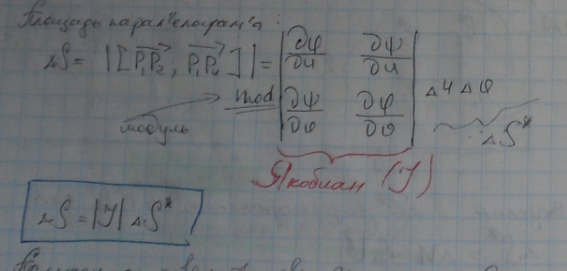 Площадь паралелограм'а :
ΔS = |[P₁P₂, P₁P₄]| = | ∂φ/∂u ∂ψ/∂u |
mod | ∂ψ/∂v ∂φ/∂v | Δu Δv
модуль
ΔS*
Якобиан (J)
ΔS = |J| ΔS*